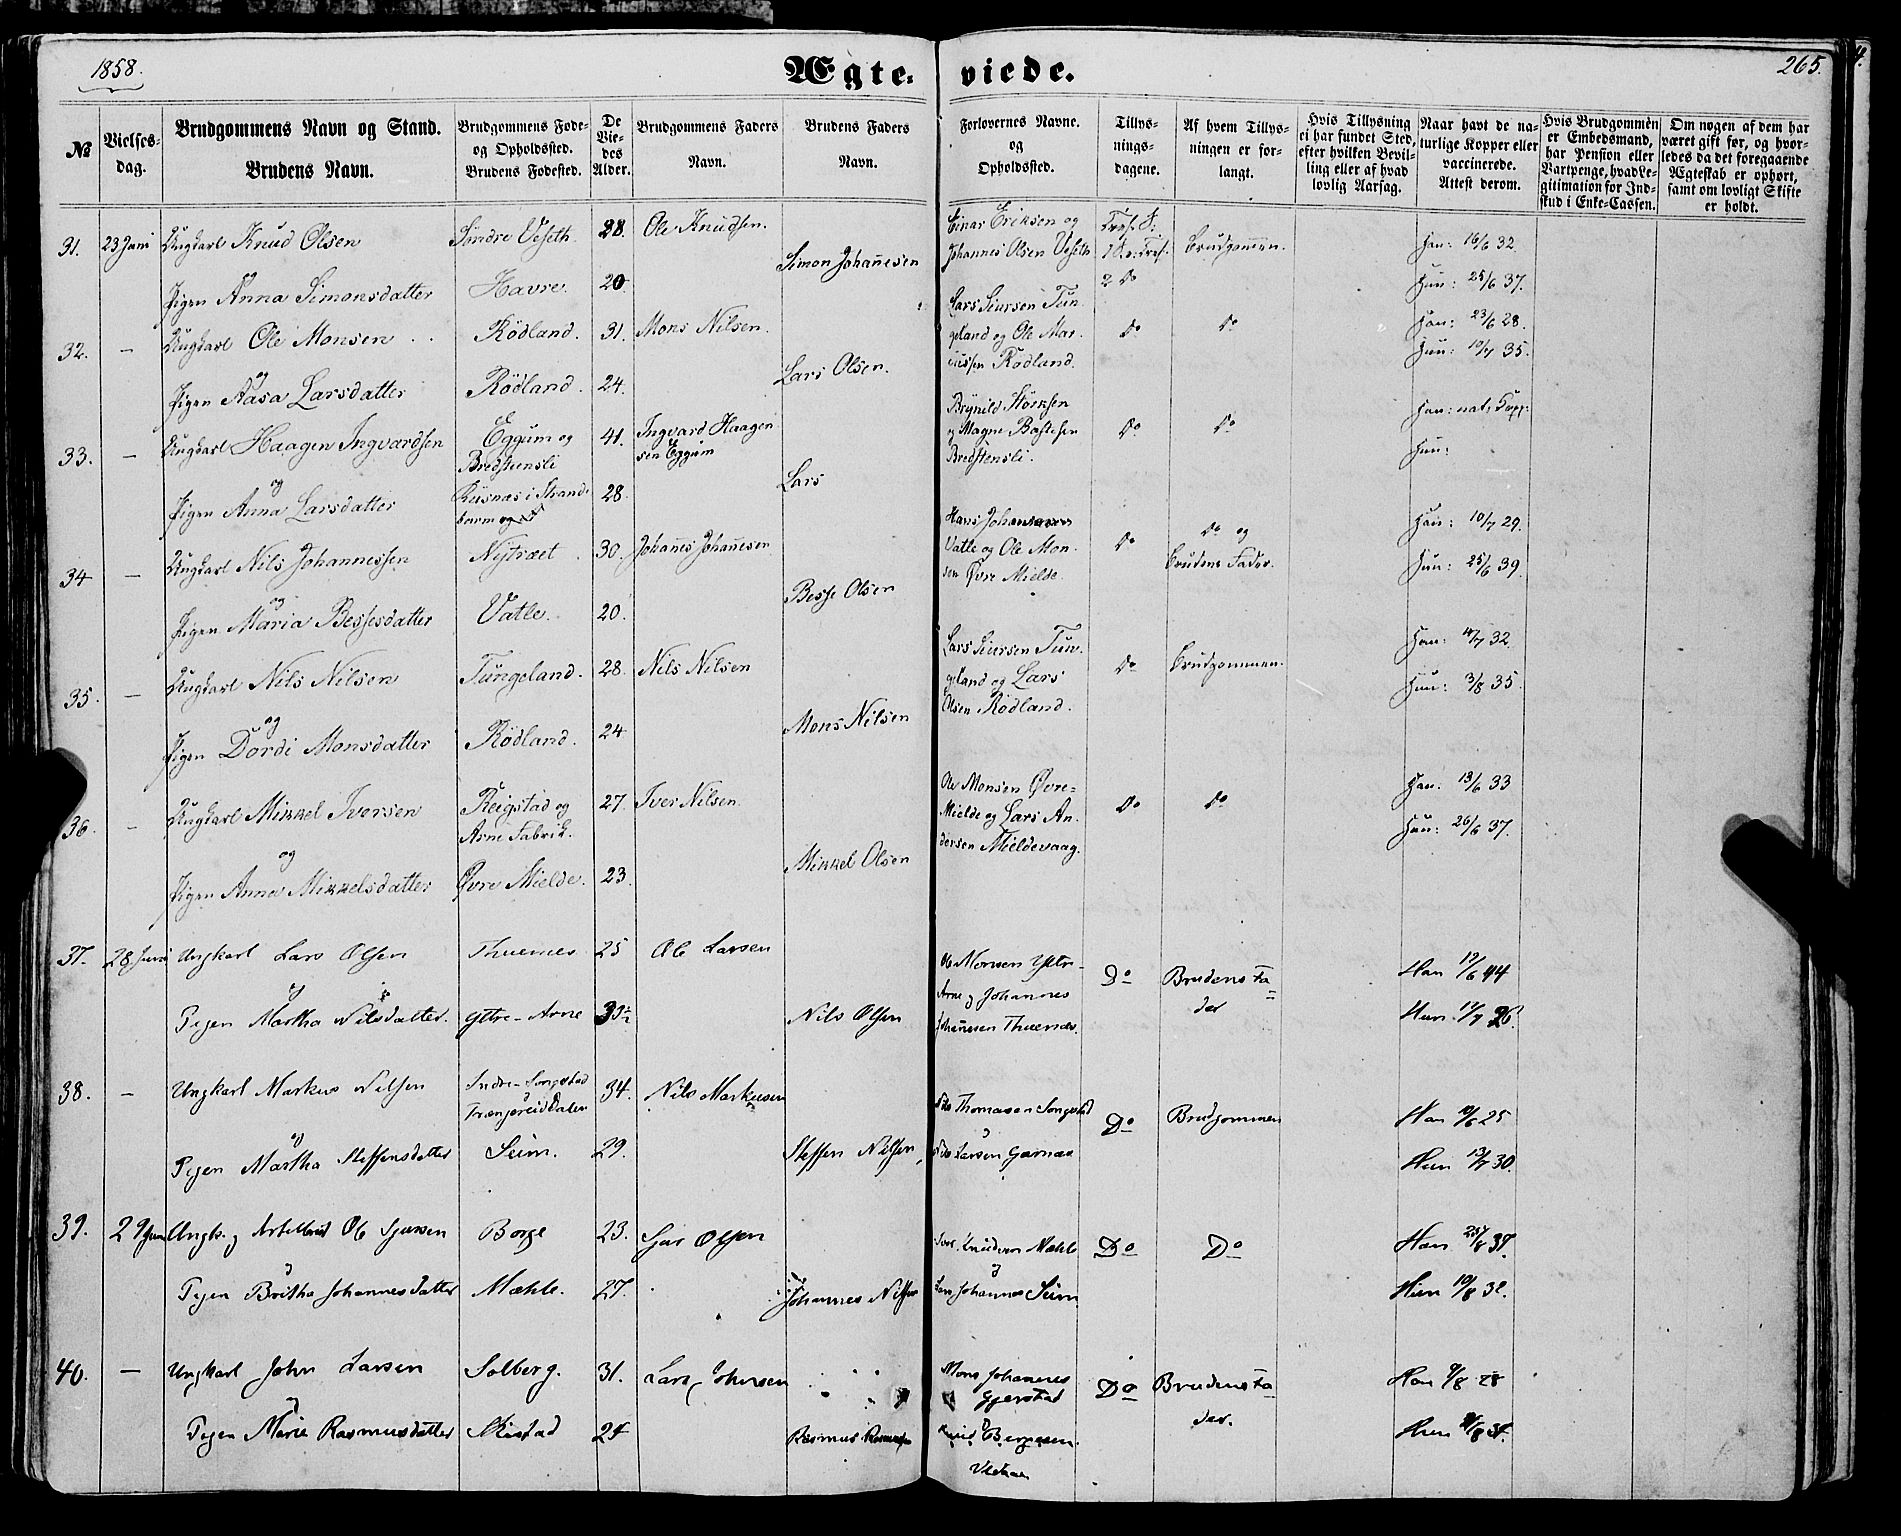 1858.
Ægte-viede.
265.
№
Vielses-dag.
Brudgommens Navn og Stand.
Brudens Navn.
Brudgommens Føde- og Opholdssted.
Brudens Fødested.
De Vie-des Alder.
Brudgommens Faders Navn.
Brudens Faders Navn.
Forlovernes Navne. og Opholdssted.
Tillys-nings-dagene.
Af hvem Tillys-ningen er for-langt.
Hvis Tillysning ei har fundet Sted, efter hvilken Bevil-ling eller af hvad lovlig Aarsag.
Naar havt de na-turlige Kopper eller vaccinerede. Attest derom.
Hvis Brudgommen er Embedsmand, har Pension eller Vartpenge, hvad Le-gitimation for Ind-skud i Enke-Cassen.
Om nogen af dem har været gift før, og hvor-ledes da det foregaaende Ægteskab er ophørt, samt om lovligt Skifte er holdt.
31. 23 Juni Ungkarl Knud Olsen Søndre Veseth. 28. Ole Knudsen. Einar Eriksen og Johannes Olsen Veseth Brudgommen. Han: 16/6 32.
og
Pigen Anna Simonsdatter Havre. 20 Simon Johannesen 2 Do Hun: 25/6 37.
32. – Ungkarl Ole Monsen Rödland. 31. Mons Nilsen. Lars Siursen Tun-geland og Ole Mar- Rödland. Do Do Han: 23/6 28.
og
Pigen Aasa Larsdatter Rödland. 24. Lars Olsen. Hun: 10/7 35.
33. – Ungkarl Haagen Ingvardsen Eggum og Bredstensli 41. Ingvard Haagen sen Eggum Brynild Störksen og Magne Bastesen Bredstensli. Do Do Han: nat: Kopp:
og
Pigen Anna Larsdatter i Strand-barm 28. Lars Hun:
34 – Ungkarl Nils Johannessen Nytræet 30. Johanes Johannesen Hans Johannesen Vatle og Ole Mon-sen Øvre Mielde. Do Do og Brudens Fader. Han: 10/7 29.
og
Pigen Maria Bessesdatter Vatle. 20. Besse Olsen Hun: 25/6 39.
35. – Ungkarl Nils Nilsen Tungeland. 28. Nils Nilsen Lars Siursen Tun-geland og Lars Olsen Rödland. Do Brudgommen. Han: 4/7 32
og
Pigen Dordi Monsdatter Rödland. 24 Mons Nilsen Hun: 3/8 35.
36. – Ungkarl Mikkel Iversen Reigstad og Arne Fabrik. 27. Iver Nilsen. Ole Monsen Øvre-Mielde og Lars An-dersen Mieldevaag. Do Do Han: 13/6 33
og
Pigen Anna Mikkelsdatter Øvre Mielde. 23. Mikkel Olsen Hun: 26/6 37.
37. 28 Juni Ungkarl Lars Olsen Thuenes 25 Ole Larsen Ole Monsen Ytre-Arne og Johannes Johannesen Thuenes. Do Brudens Fa-der Han 12/6 44
og
Pigen Martha Nilsdatter. Yttre-Arne Nils Olsen Hun 12/7 26.
38. – Ungkarl Markus Nilsen Indre-Songstad 34. Nils Markusen Nils Thomasen Songstad Do Brudgommen Han 10/6 25
og
Pigen Martha Steffensdatter Seim. 29. Steffen Nilsen, Nils Larsen Garnæs Hun 13/7 30.
39. 29 Juni Ungk. og Ole Sjursen Borge 23. Sjur Olsen Knudsen Mæhle Do Do Han 25/8 37.
og
Pigen Britha Johannesdatter Mæhle. 27. Johannes Nilsen Lars Johannes Seim Hun 10/8 32.
40. – Ungkarl John Larsen Solberg. 31. Lars Johnsen Mons Johannes Gjerstad Do Brudens Fa-der. Han 9/8 28
og
Pigen Marie Rasmusdatter Mistad 24 Rasmus Hun